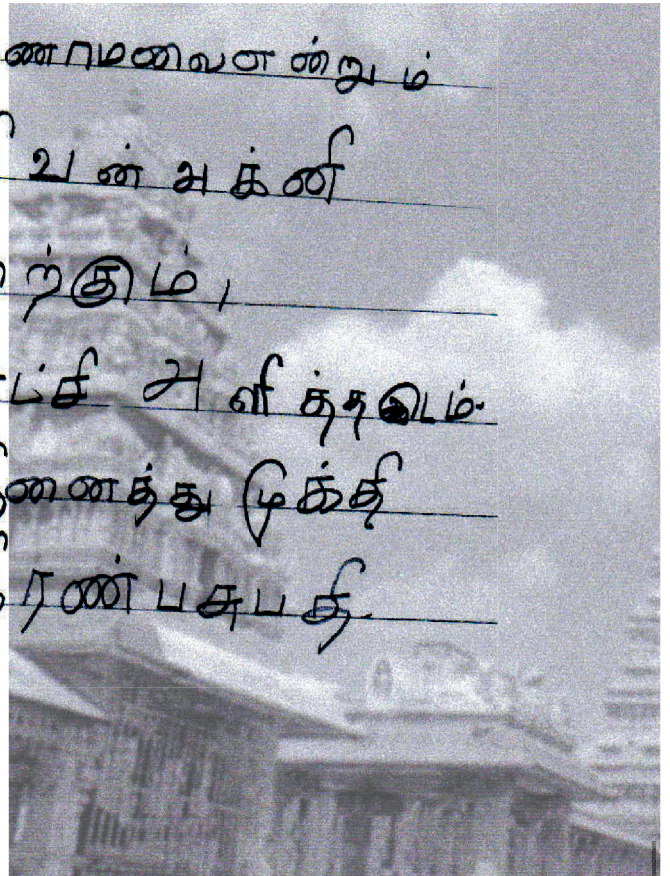 ணாமலை என்றும்
வன் அக்னி
ற்கும்,
ட்சி அளித்த இடம்.
னைத்து முக்தி
ரண் பசுபதி.